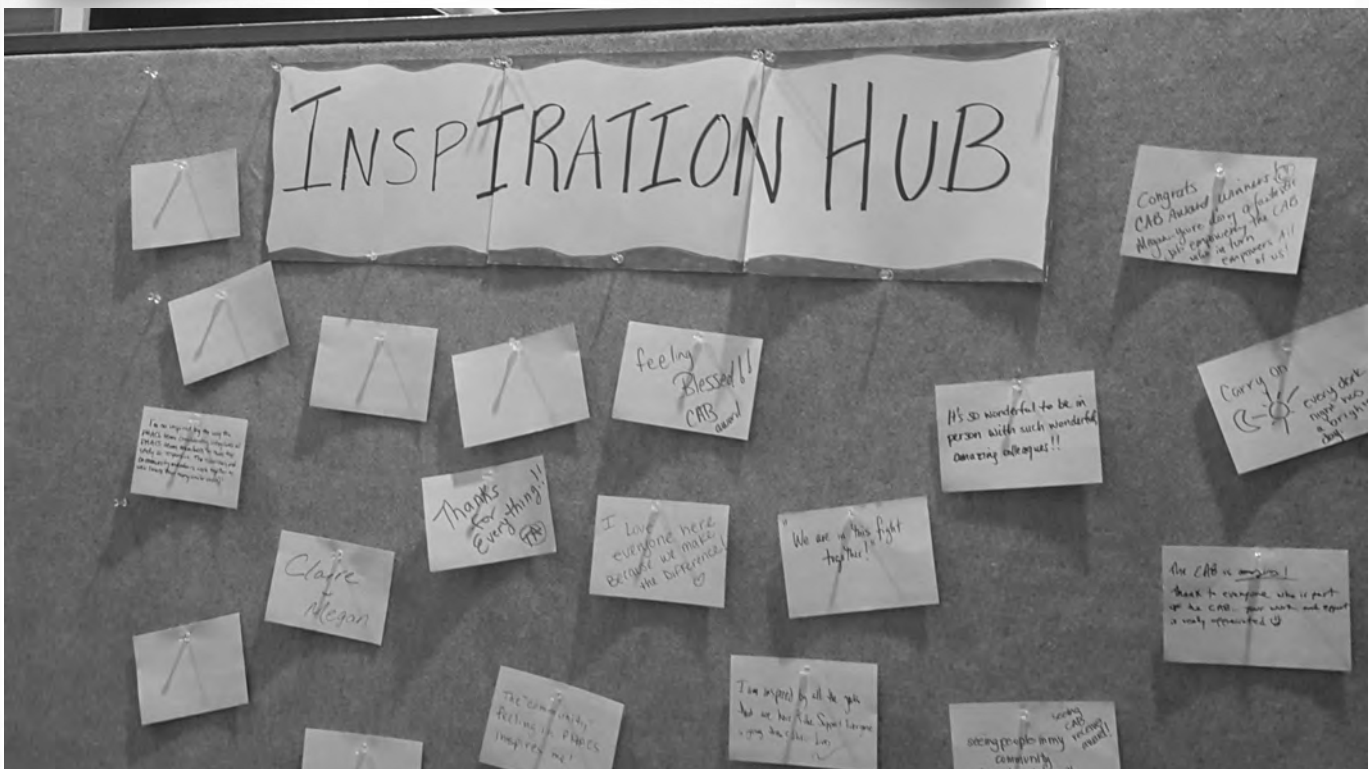 INSPIRATION HUB
Congrats
CAB Award winners!
Megan.. you're doing a fantastic
job empowering the CAB
who in turn
empowers All
of us!
feeling
Blessed!!
CAB
award
It's so wonderful to be in
person with such wonderful,
amazing colleagues!!
Carry on
every dark
night has
a bright
day
I'm so inspired by the way the
community members work together
Thanks
for
Everything!!
I
Love
everyone here
Because we make
the Difference!
"We are in this fight
together!"
Claire
Megan
The CAB is
thank to everyone who is part
of the CAB. your work and effort
is really appreciated
The "community"
feeling in
inspires me!
I am inspired by all the
that we has
seeing people in my
community
seeing
CAB
receive
award!